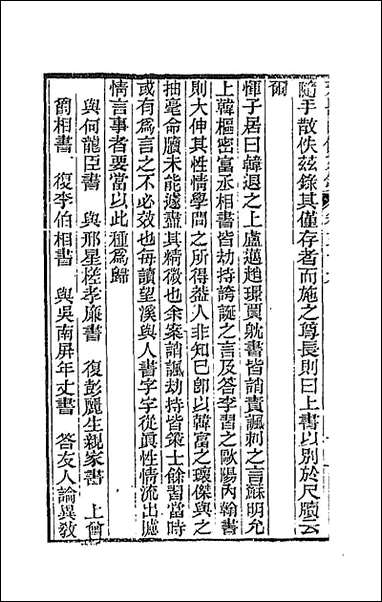 隨手散佚茲錄其僅存者而施之尊長則曰上書以別於尺牘云
爾
惲子居曰韓退之上盧邁趙璟賈躭書皆誚責諷刺之言蘇明允
上韓樞密富丞相書皆劫持誇誕之言及答李習之歐陽內翰書
則大伸其性情學問之所得葢人非知已卽以韓富之瓌傑與之
抽毫命牘未能遽盡其精微也余案誚諷劫持皆策士餘習當時
或有爲言之不必效也每讀望溪與人書字字從眞性情流出嘘
情言事者要當以此種爲歸
與何龍臣書　與邢星槎孝廉書　復彭麗生親家書　上曾
爵相書　復李伯相書　與吳南屏年丈書　答友人論異敎